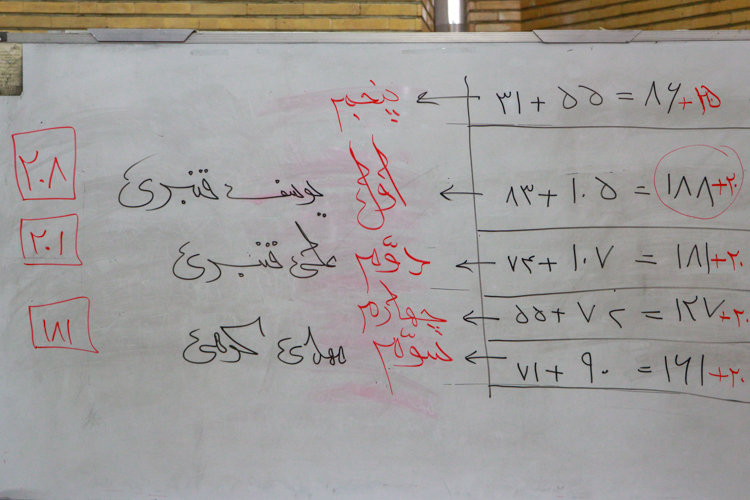 ۳۱ + ۵۵ = ۸۶ + ۲۵ ← پنجم
۸۳ + ۱۰۵ = ۱۸۸ + ۲۰ ← اول یوسف قنبری ۲۰۸
۷۴ + ۱۰۷ = ۱۸۱ + ۲۰ ← دوّم علی قنبری ۲۰۱
۵۵ + ۷۲ = ۱۲۷ + ۲۰ ← چهارم
۷۱ + ۹۰ = ۱۶۱ + ۲۰ ← سوّم مهدی کرمی ۱۸۱